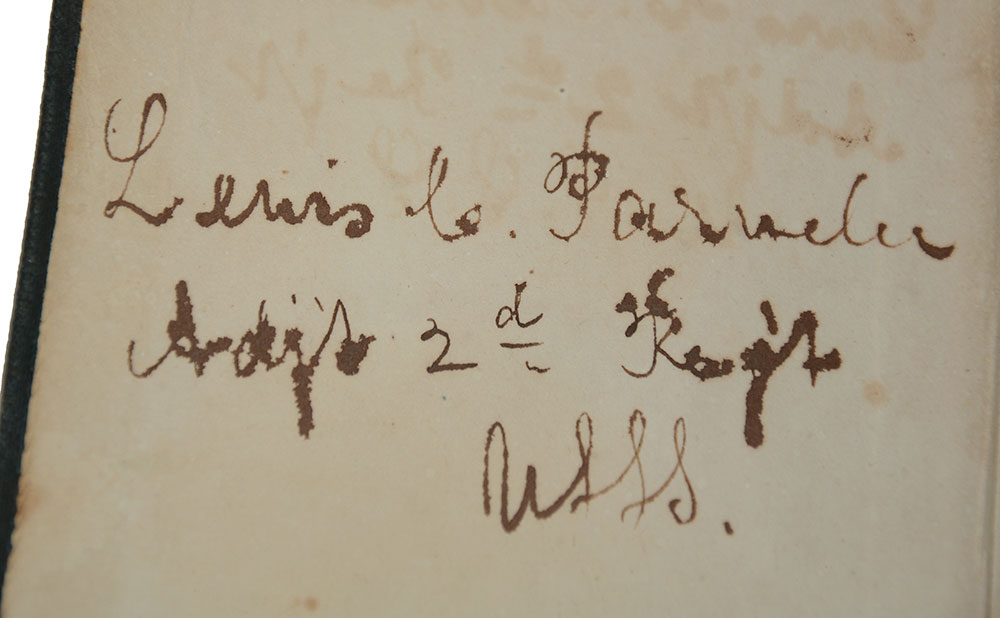 Lewis C. Parmelee
Adjt 2d Regt
USSS.